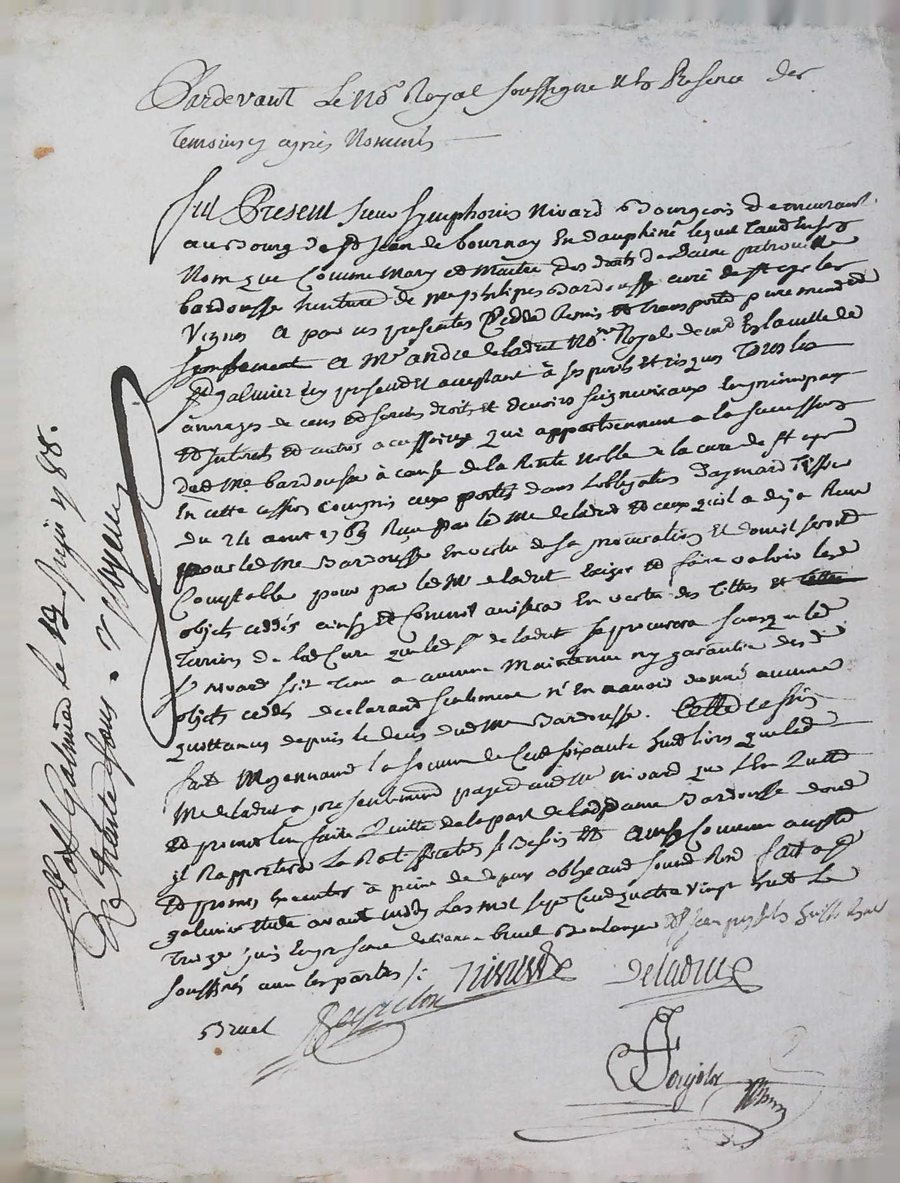 Pardevant Le No Royal soussigne Et En Presence des
Temoins cy apres Nommés
fut Present Sieur Symphorien Nivard Bourgeois demeurant
au Bourg de St Jean de bournay En dauphiné lequel tant En son
Nom que Comme Mary et Maitre des droits de
bardousse heritiere de Me philipes Bardousse curé de St cyr les
Vignes a par ces presentes Cedé Remis et Transporté purement et
simplement a Mr andré deladret Nore Royal de la ville de
St galmier icy present et acceptant à ses perils et risques Tous les
arrerages de cens et servis droits et devoirs seigneuriaux En principaux
et interets et autres accessoires qui appartiennent a la succession
dud Me bardousse à cause de la Rente Noble de la cure de St cyr
En cette cession compris ceux portés dans lobligation daymard
du 24 aout 1769 Recue par led Me deladret et ceux quil a deja Recu
pour led Me Bardousse En vertu de sa procuration et dont il seroit
Comptable pour par led Mr deladret Exiger et faire valoir lesd
objets cedés ainsy et Comme avisera En vertu des Titres et
Terriers de lad Cure que led Sr deladret se procurera sans que led
Sr Nivard soit Tenu a aucune Maintenue ny garantie desd
objets cedés declarant seulement n'En avoir donné aucune
quittance depuis le deces dud Me Bardousse. Cette cession
fait Moyennant la somme de Cent soixante huit livres que led
Me deladret a presentement payé aud Mr Nivard qui l'En quitte
et promet En faire quitte de la part de lad dame Bardousse dont
il Rapportera La Ratification et ainsy Convenu accepté
et promis Executer à peine de depens obligeant soumet Rend fait a St
galmier Etude avant midy Lan mil sept Cent quatre vingt huit le
Treize juin En presence detienne bruel Boulanger et
soussignés avec les parties /:
Nivard deladret
Bruel
St Galmier le 19 Juin 1788.
Re trente sous.